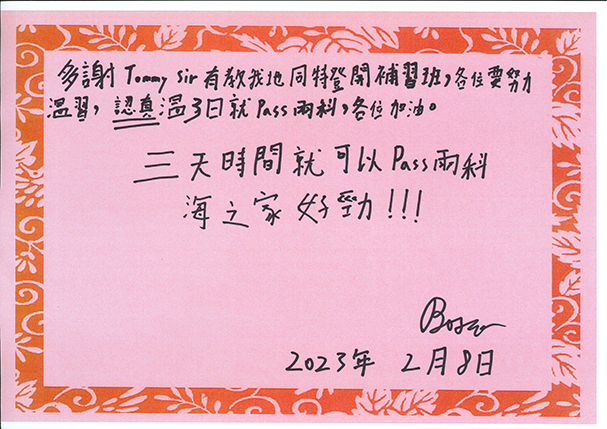 多謝 Tommy Sir 有教我地同特登開補習班，各位要努力
溫習，認真溫3日就Pass兩科，各位加油。
三天時間就可以Pass兩科
海之家好勁!!!
Bosco
2023年 2月8日